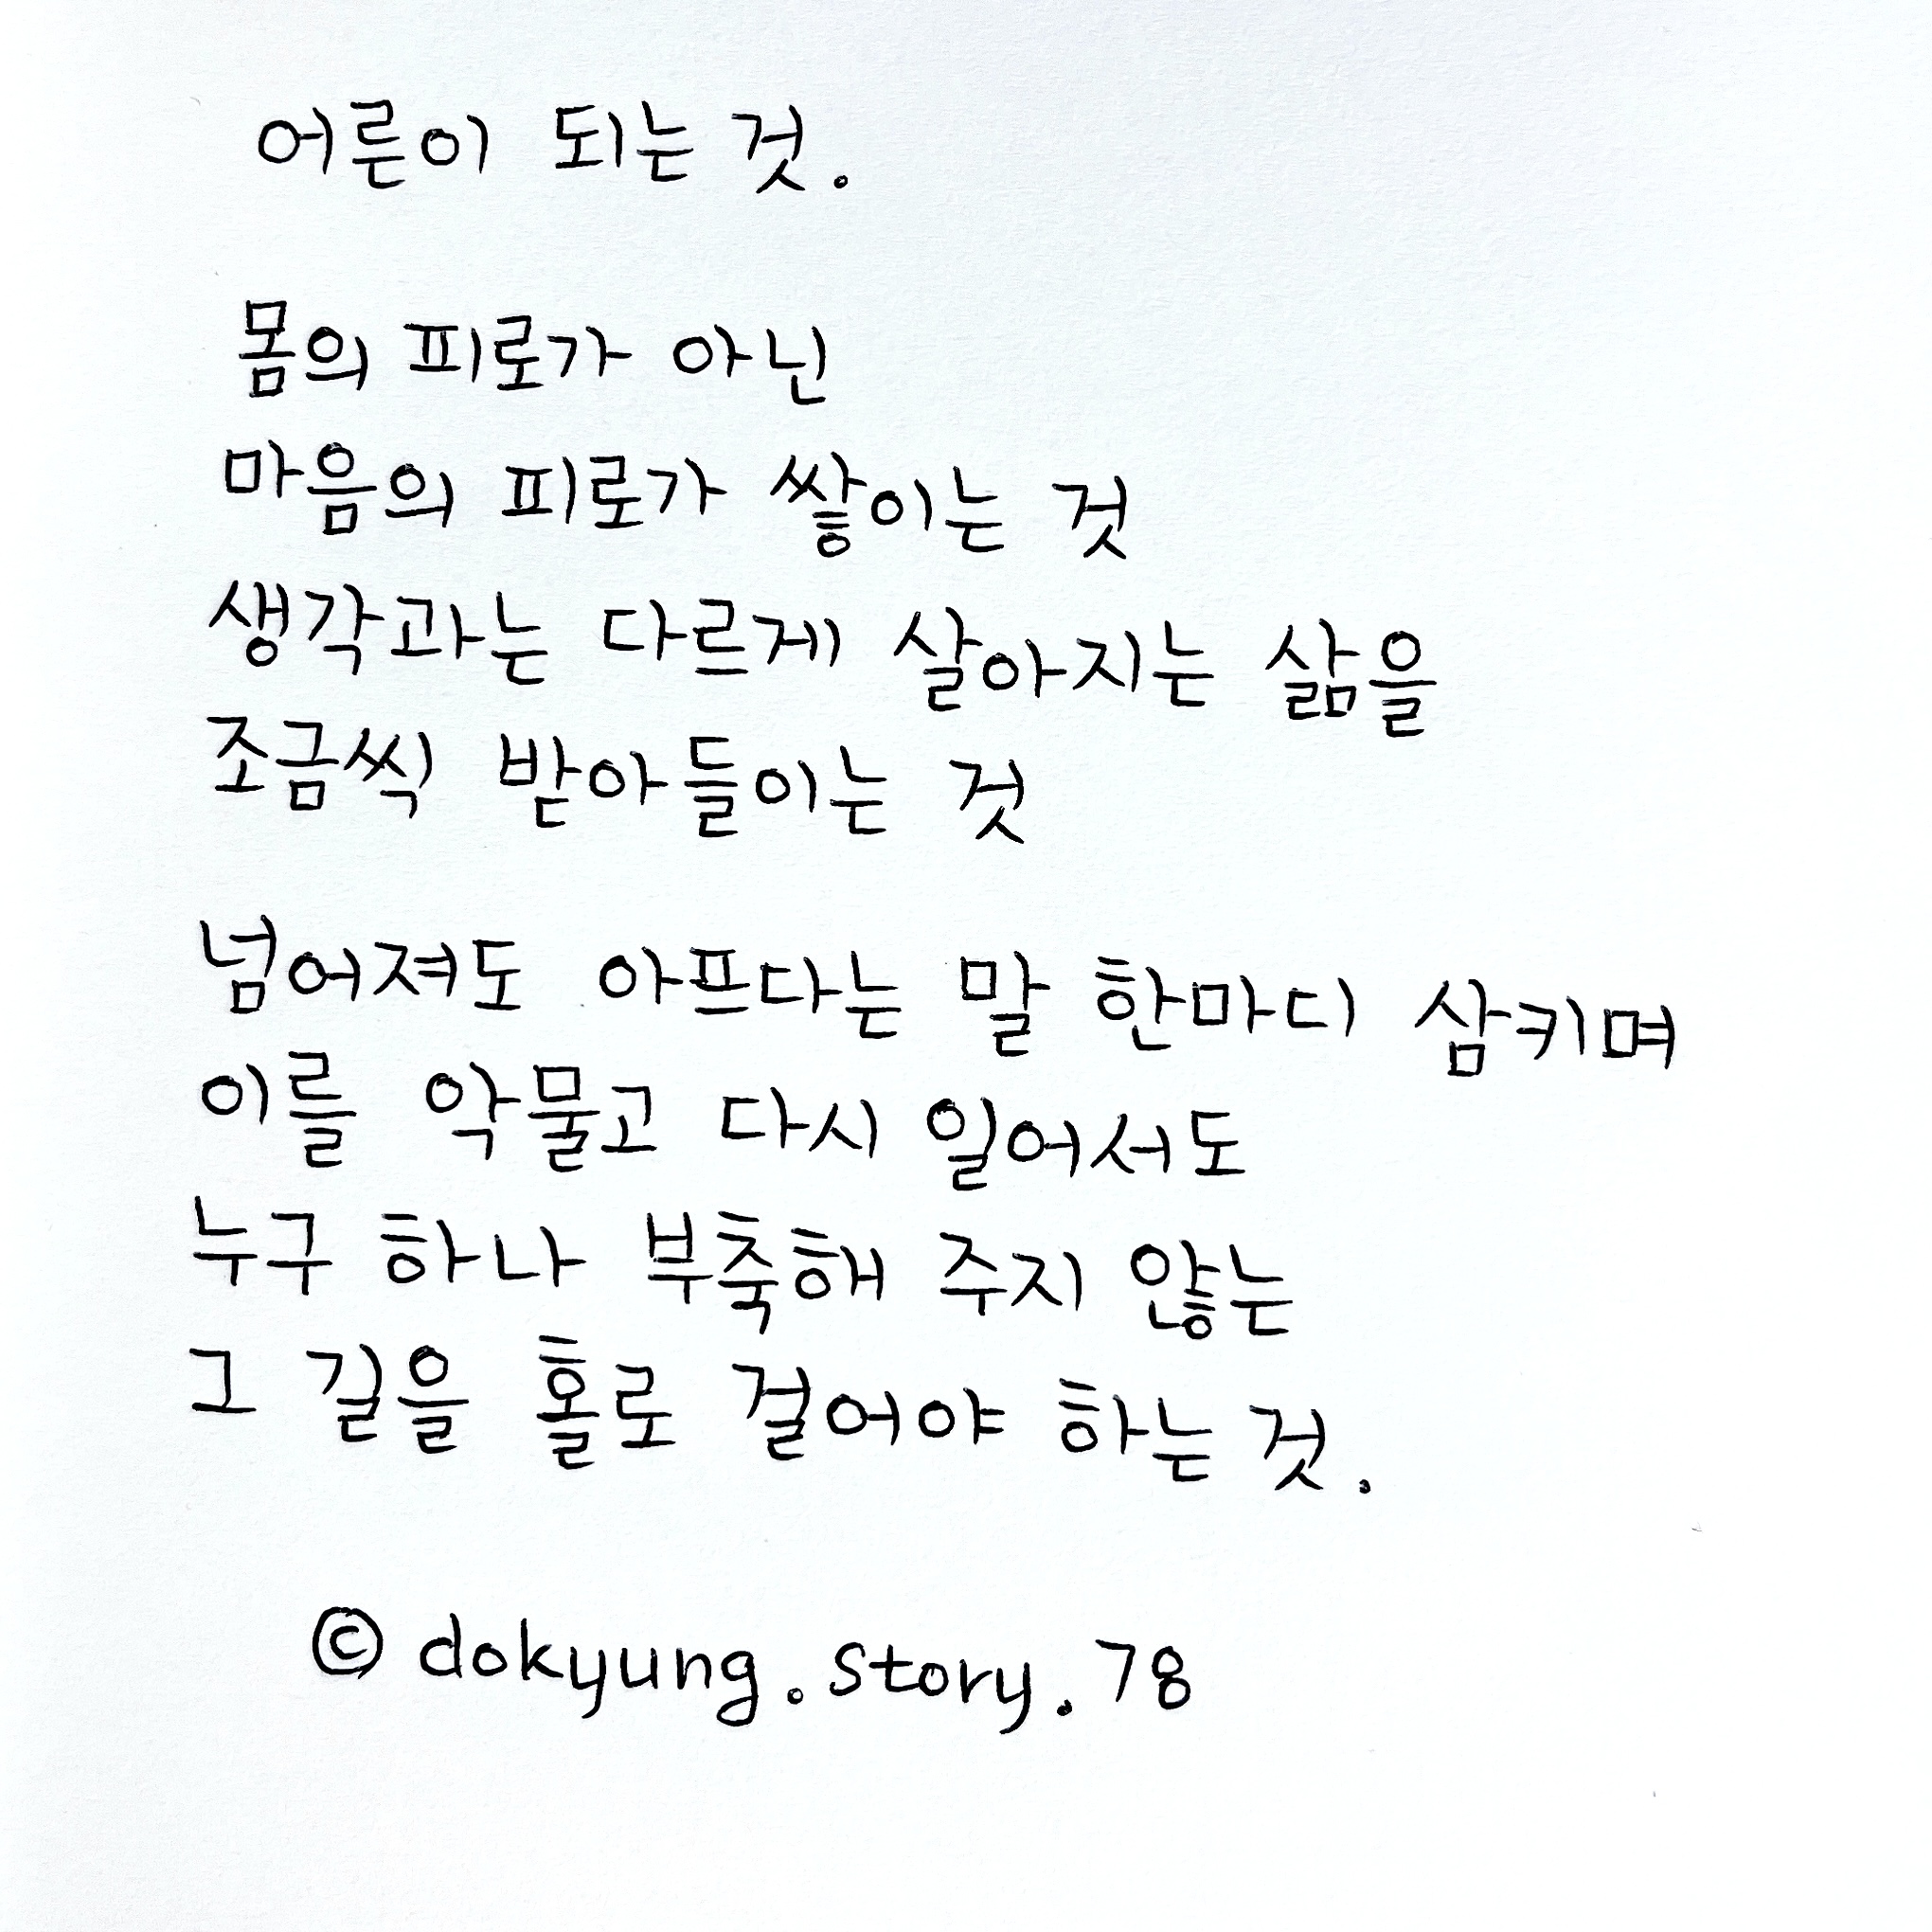 어른이 되는 것.
몸의 피로가 아닌
마음의 피로가 쌓이는 것
생각과는 다르게 살아지는 삶을
조금씩 받아들이는 것
넘어져도 아프다는 말 한마디 삼키며
이를 악물고 다시 일어서도
누구 하나 부축해 주지 않는
그 길을 홀로 걸어야 하는 것.
© dokyung.story.78